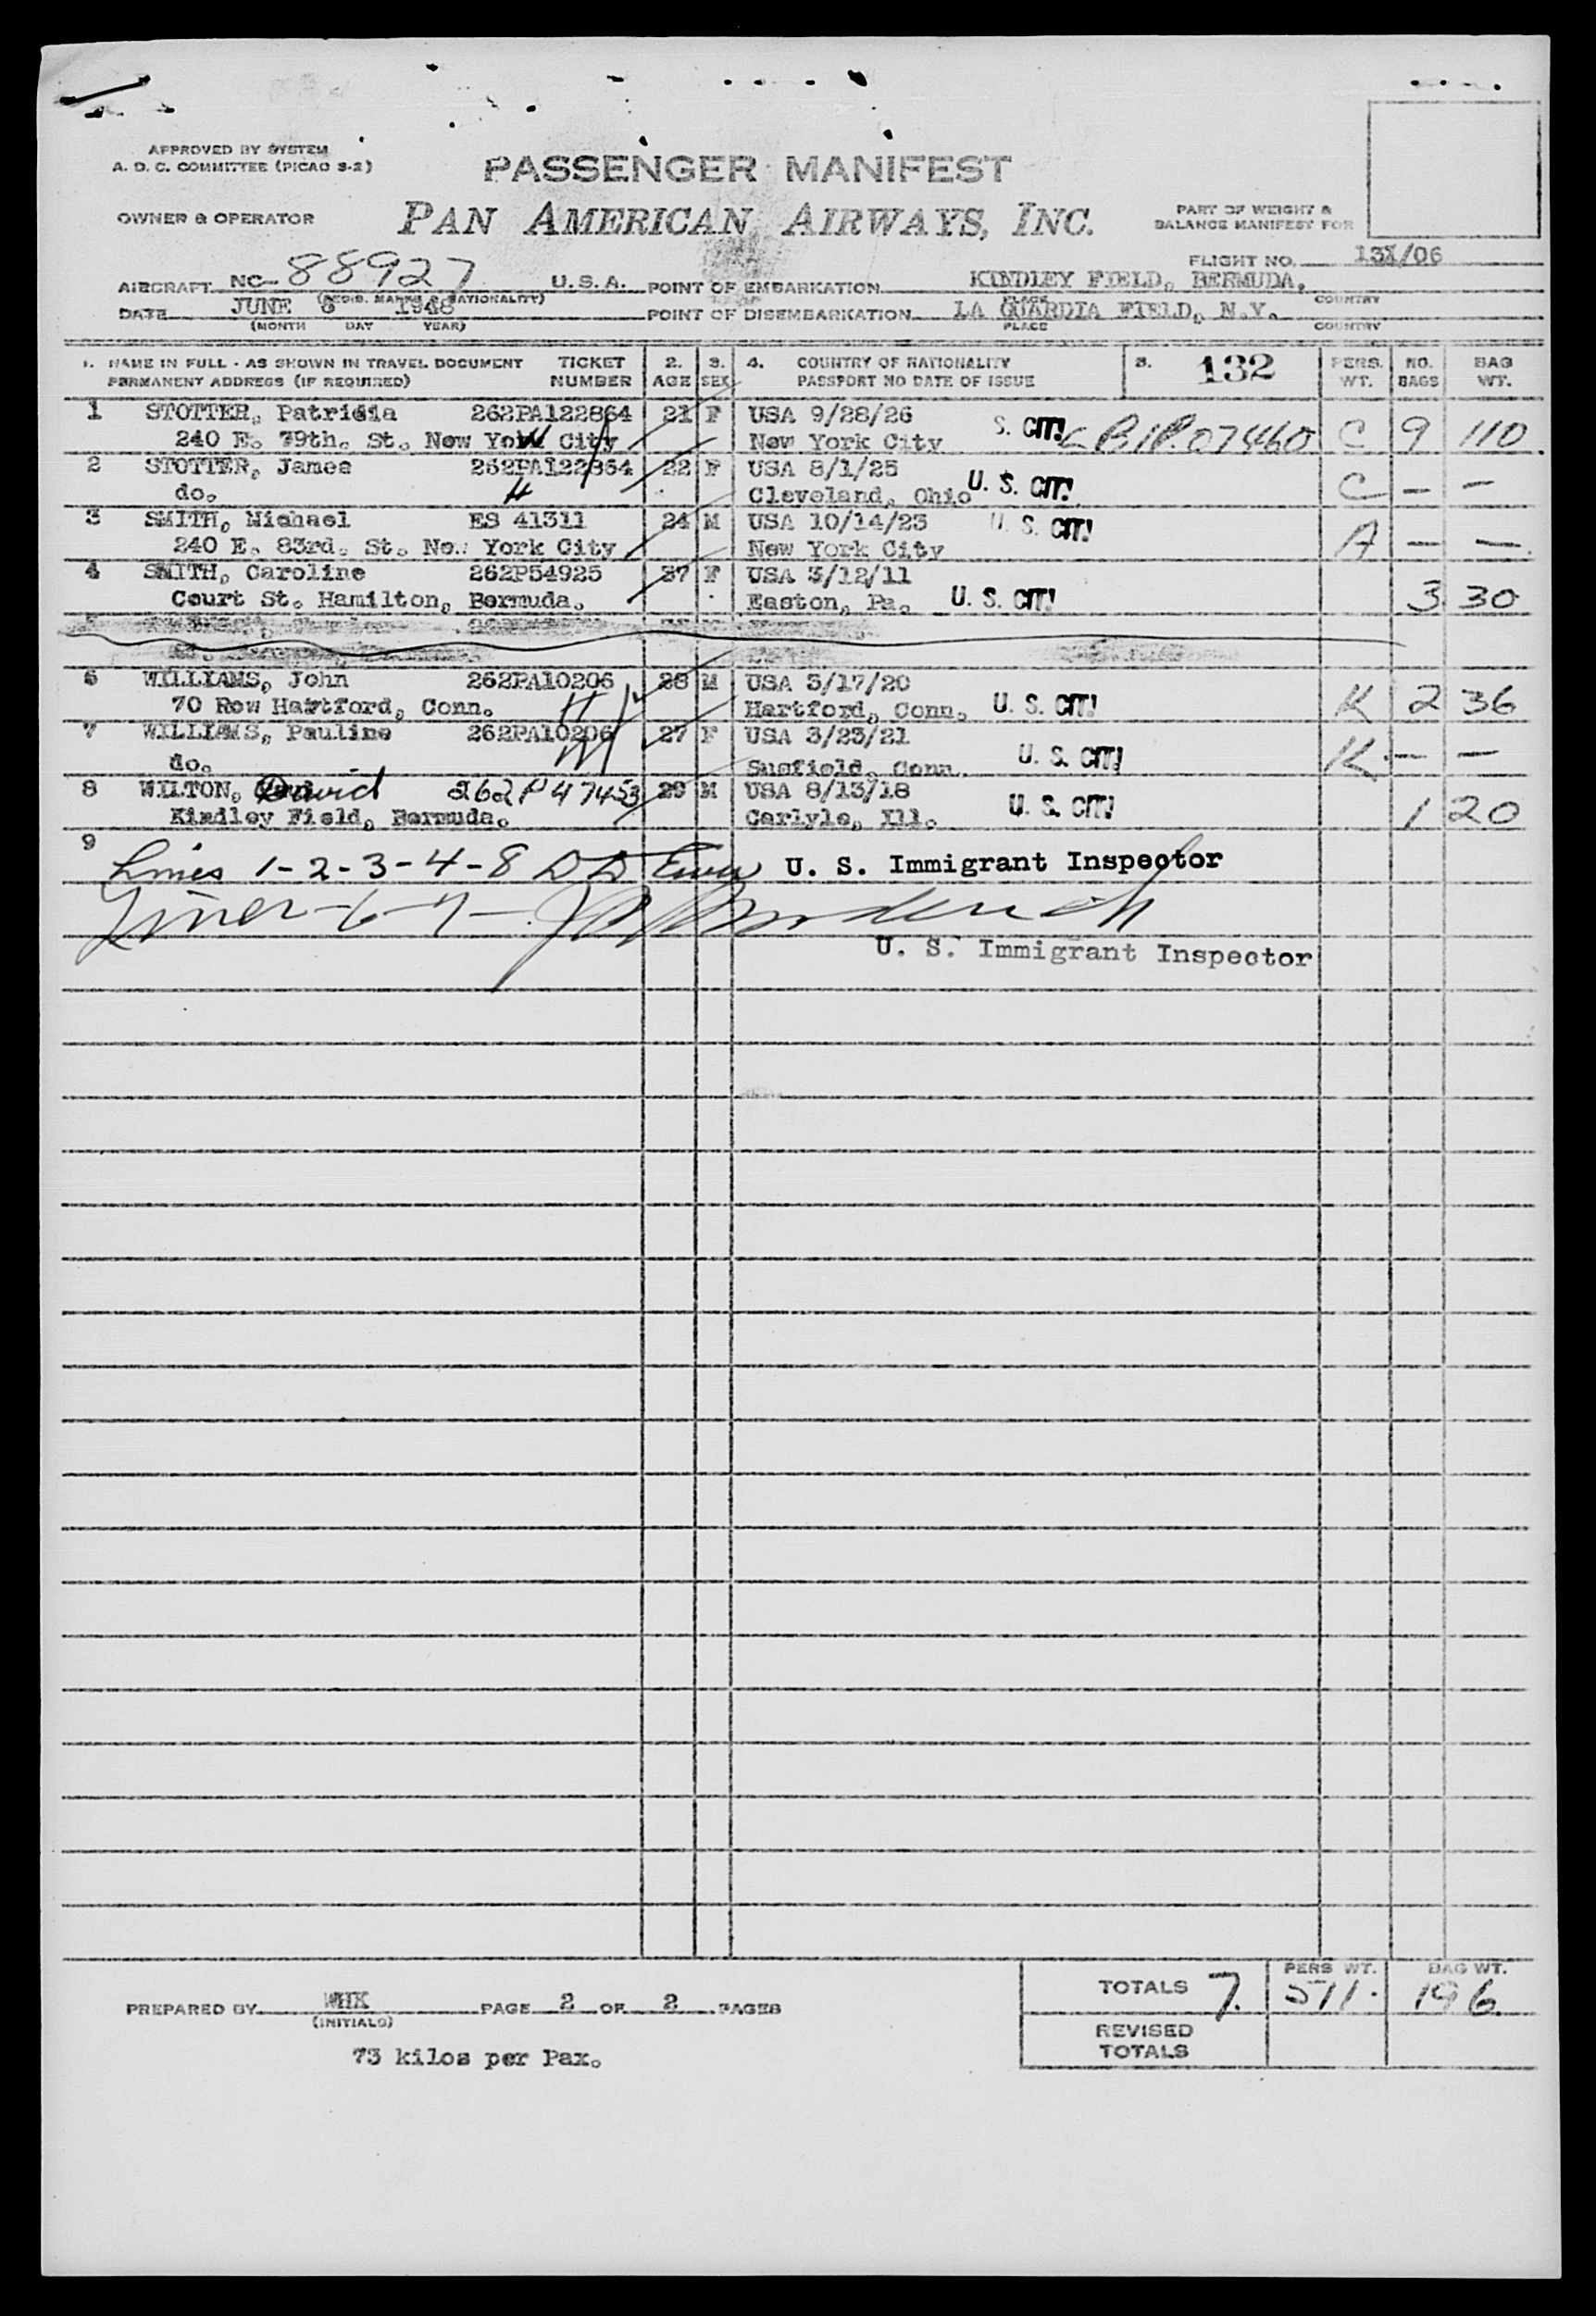 APPROVED BY SYSTEM
A. D. C. COMMITTEE (PICAO S-2)
PASSENGER MANIFEST
OWNER & OPERATOR PAN AMERICAN AIRWAYS, INC.
PART OF WEIGHT &
BALANCE MANIFEST FOR
FLIGHT NO. 131/06
AIRCRAFT NC-88927 U.S.A. POINT OF EMBARKATION KINDLEY FIELD, BERMUDA.
(REGIS. MARKS & NATIONALITY) PLACE COUNTRY
DATE JUNE 6 1948 POINT OF DISEMBARKATION LA GUARDIA FIELD, N.Y.
(MONTH DAY YEAR) PLACE COUNTRY
1. NAME IN FULL - AS SHOWN IN TRAVEL DOCUMENT TICKET 2. 3. 4. COUNTRY OF NATIONALITY 5. 132 PERS. NO. BAG
PERMANENT ADDRESS (IF REQUIRED) NUMBER AGE SEX PASSPORT NO DATE OF ISSUE WT. BAGS WT.
1 STOTTER, Patricia 262PA122864 21 F USA 9/28/26 S. CIT! C 9 110
240 E. 79th. St. New York City New York City
2 STOTTER, James 262PA122864 22 F USA 8/1/25 C — —
do. H Cleveland, Ohio U. S. CIT!
3 SMITH, Michael ES 41311 24 M USA 10/14/23 U. S. CIT! A — —
240 E. 83rd. St. New York City New York City
4 SMITH, Caroline 262P54925 37 F USA 3/12/11 3 30
Court St. Hamilton, Bermuda. Easton, Pa. U. S. CIT!
6 WILLIAMS, John 262PA10206 28 M USA 5/17/20 K 2 36
70 Row Hartford, Conn. H Hartford, Conn. U. S. CIT!
7 WILLIAMS, Pauline 262PA10206 27 F USA 3/23/21 K — —
do. W Suffield, Conn. U. S. CIT!
8 WILTON, David 262P47453 29 M USA 8/13/18 U. S. CIT! 1 20
Kindley Field, Bermuda. Carlyle, Ill.
9
Lines 1-2-3-4-8 U. S. Immigrant Inspector
Lines-6-7-
U. S. Immigrant Inspector
TOTALS 7. PERS WT. 511. BAG WT. 196.
PREPARED BY WHK PAGE 2 OF 2 PAGES
(INITIALS)
REVISED
TOTALS
73 kilos per Pax.